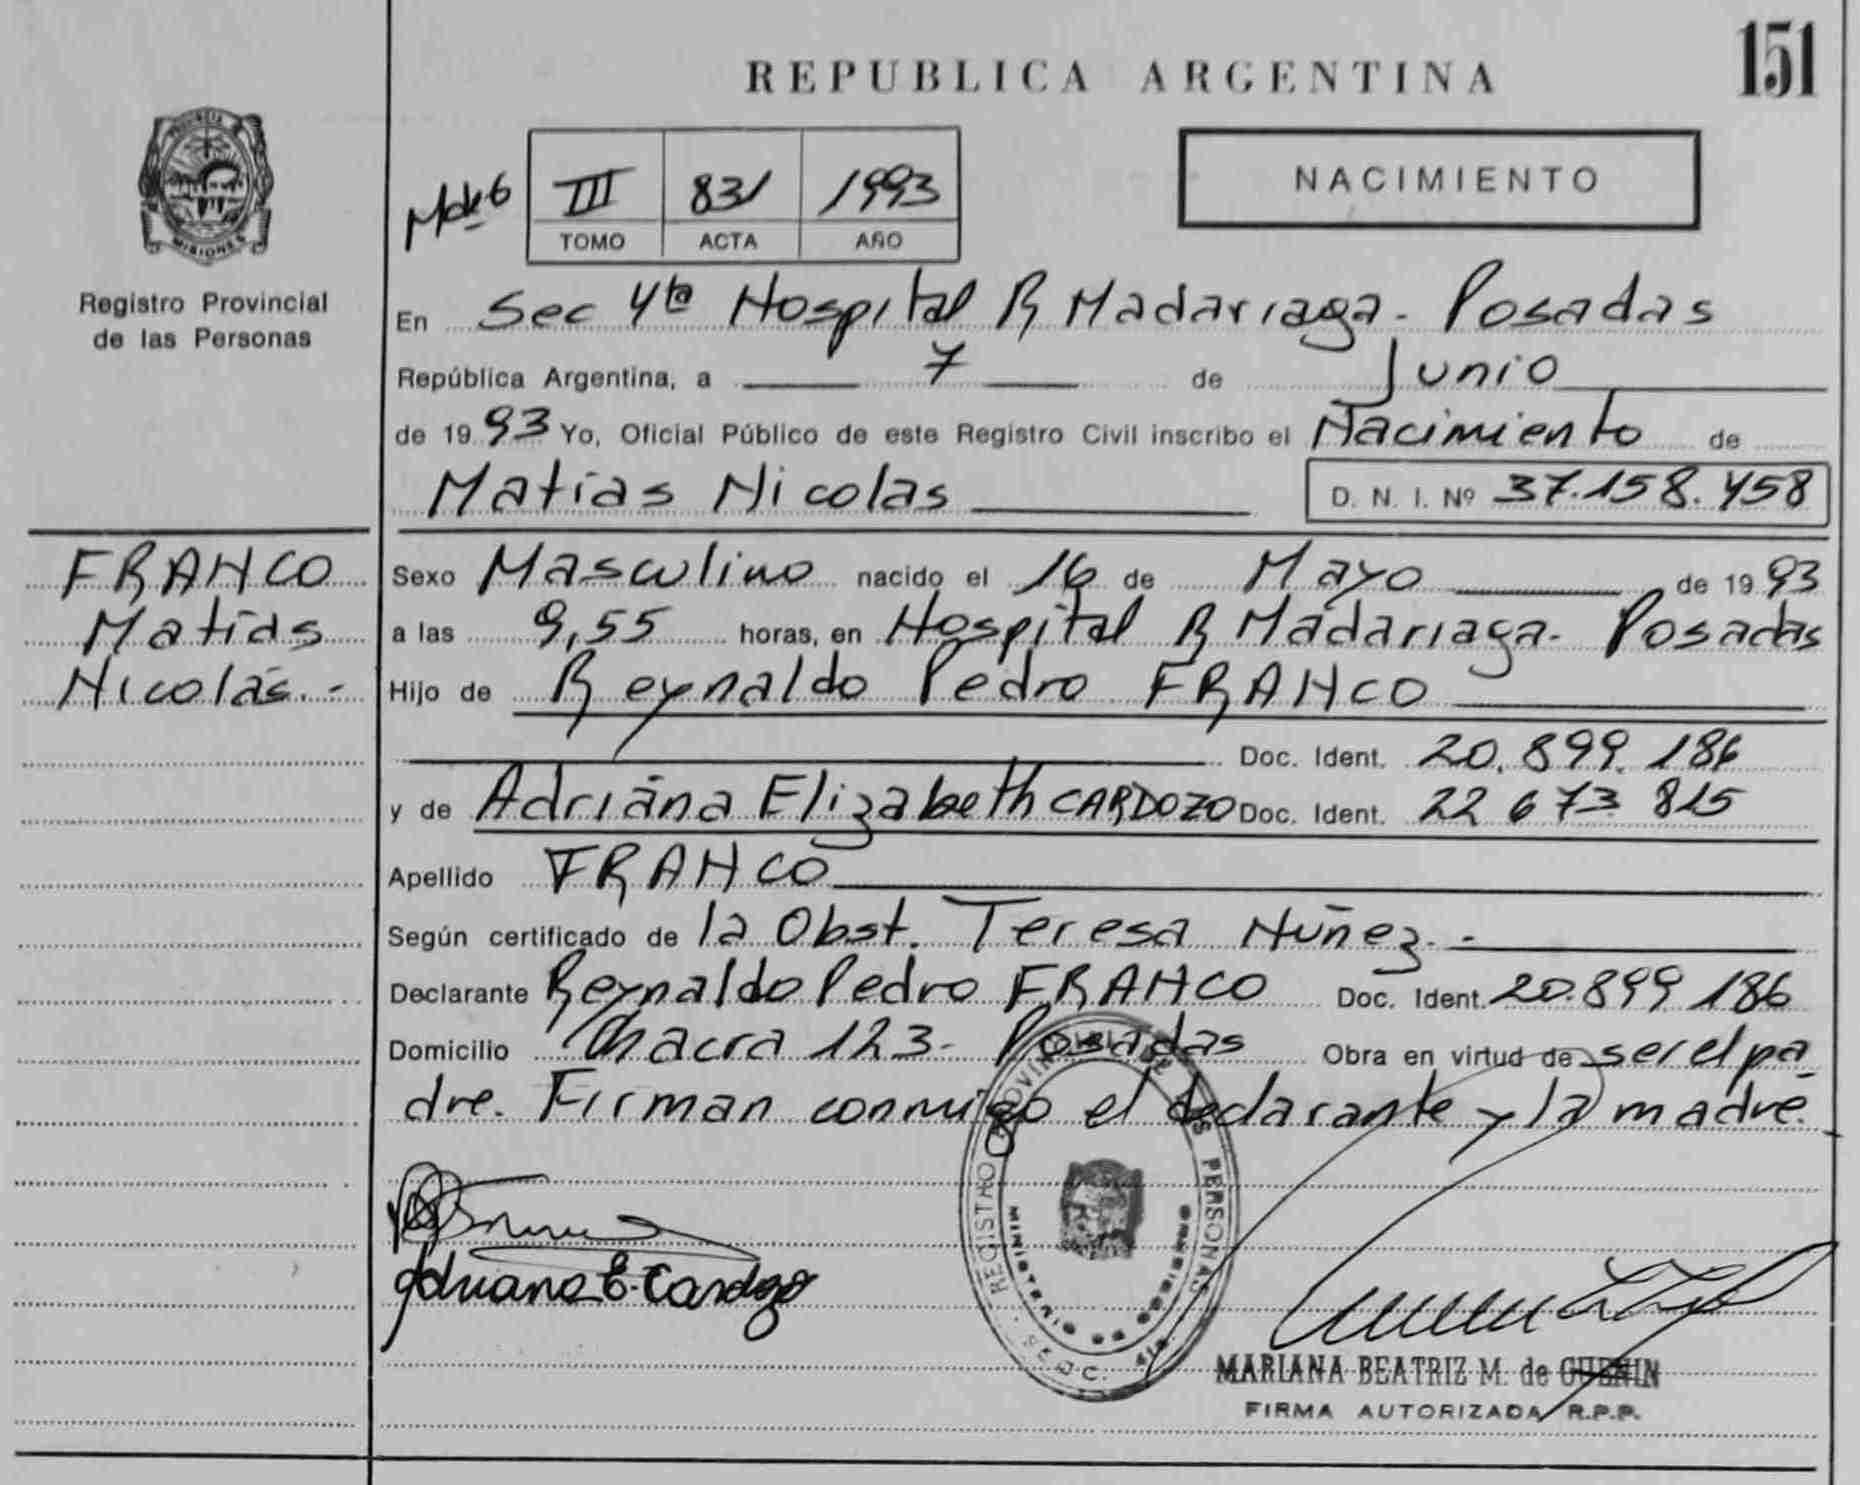 151
REPUBLICA ARGENTINA
NACIMIENTO
III 831 1993
TOMO ACTA AÑO
PROVINCIA DE
MISIONES
Registro Provincial
de las Personas
En Sec 4ta Hospital R Madariaga - Posadas
República Argentina, a 7 de Junio
de 1993 Yo, Oficial Público de este Registro Civil inscribo el Nacimiento de
Matías Nicolas D. N. I. Nº 37.158.458
FRANCO
Matías
Nicolás.-
Sexo Masculino nacido el 16 de Mayo de 1993
a las 9,55 horas, en Hospital R Madariaga - Posadas
Hijo de Reynaldo Pedro FRANCO
Doc. Ident. 20.899.186
y de Adriana Elizabeth CARDOZO Doc. Ident. 22 673 815
Apellido FRANCO
Según certificado de la Obst. Teresa Nuñez.-
Declarante Reynaldo Pedro FRANCO Doc. Ident. 20.899 186
Domicilio Chacra 123- Posadas Obra en virtud de ser el pa
dre. Firman conmigo el declarante y la madre.
REGISTRO PROVINCIAL DE LAS PERSONAS
MINISTERIO DE GOBIERNO
Adriana E. Cardozo
MARIANA BEATRIZ M. de GUENIN
FIRMA AUTORIZADA R.P.P.